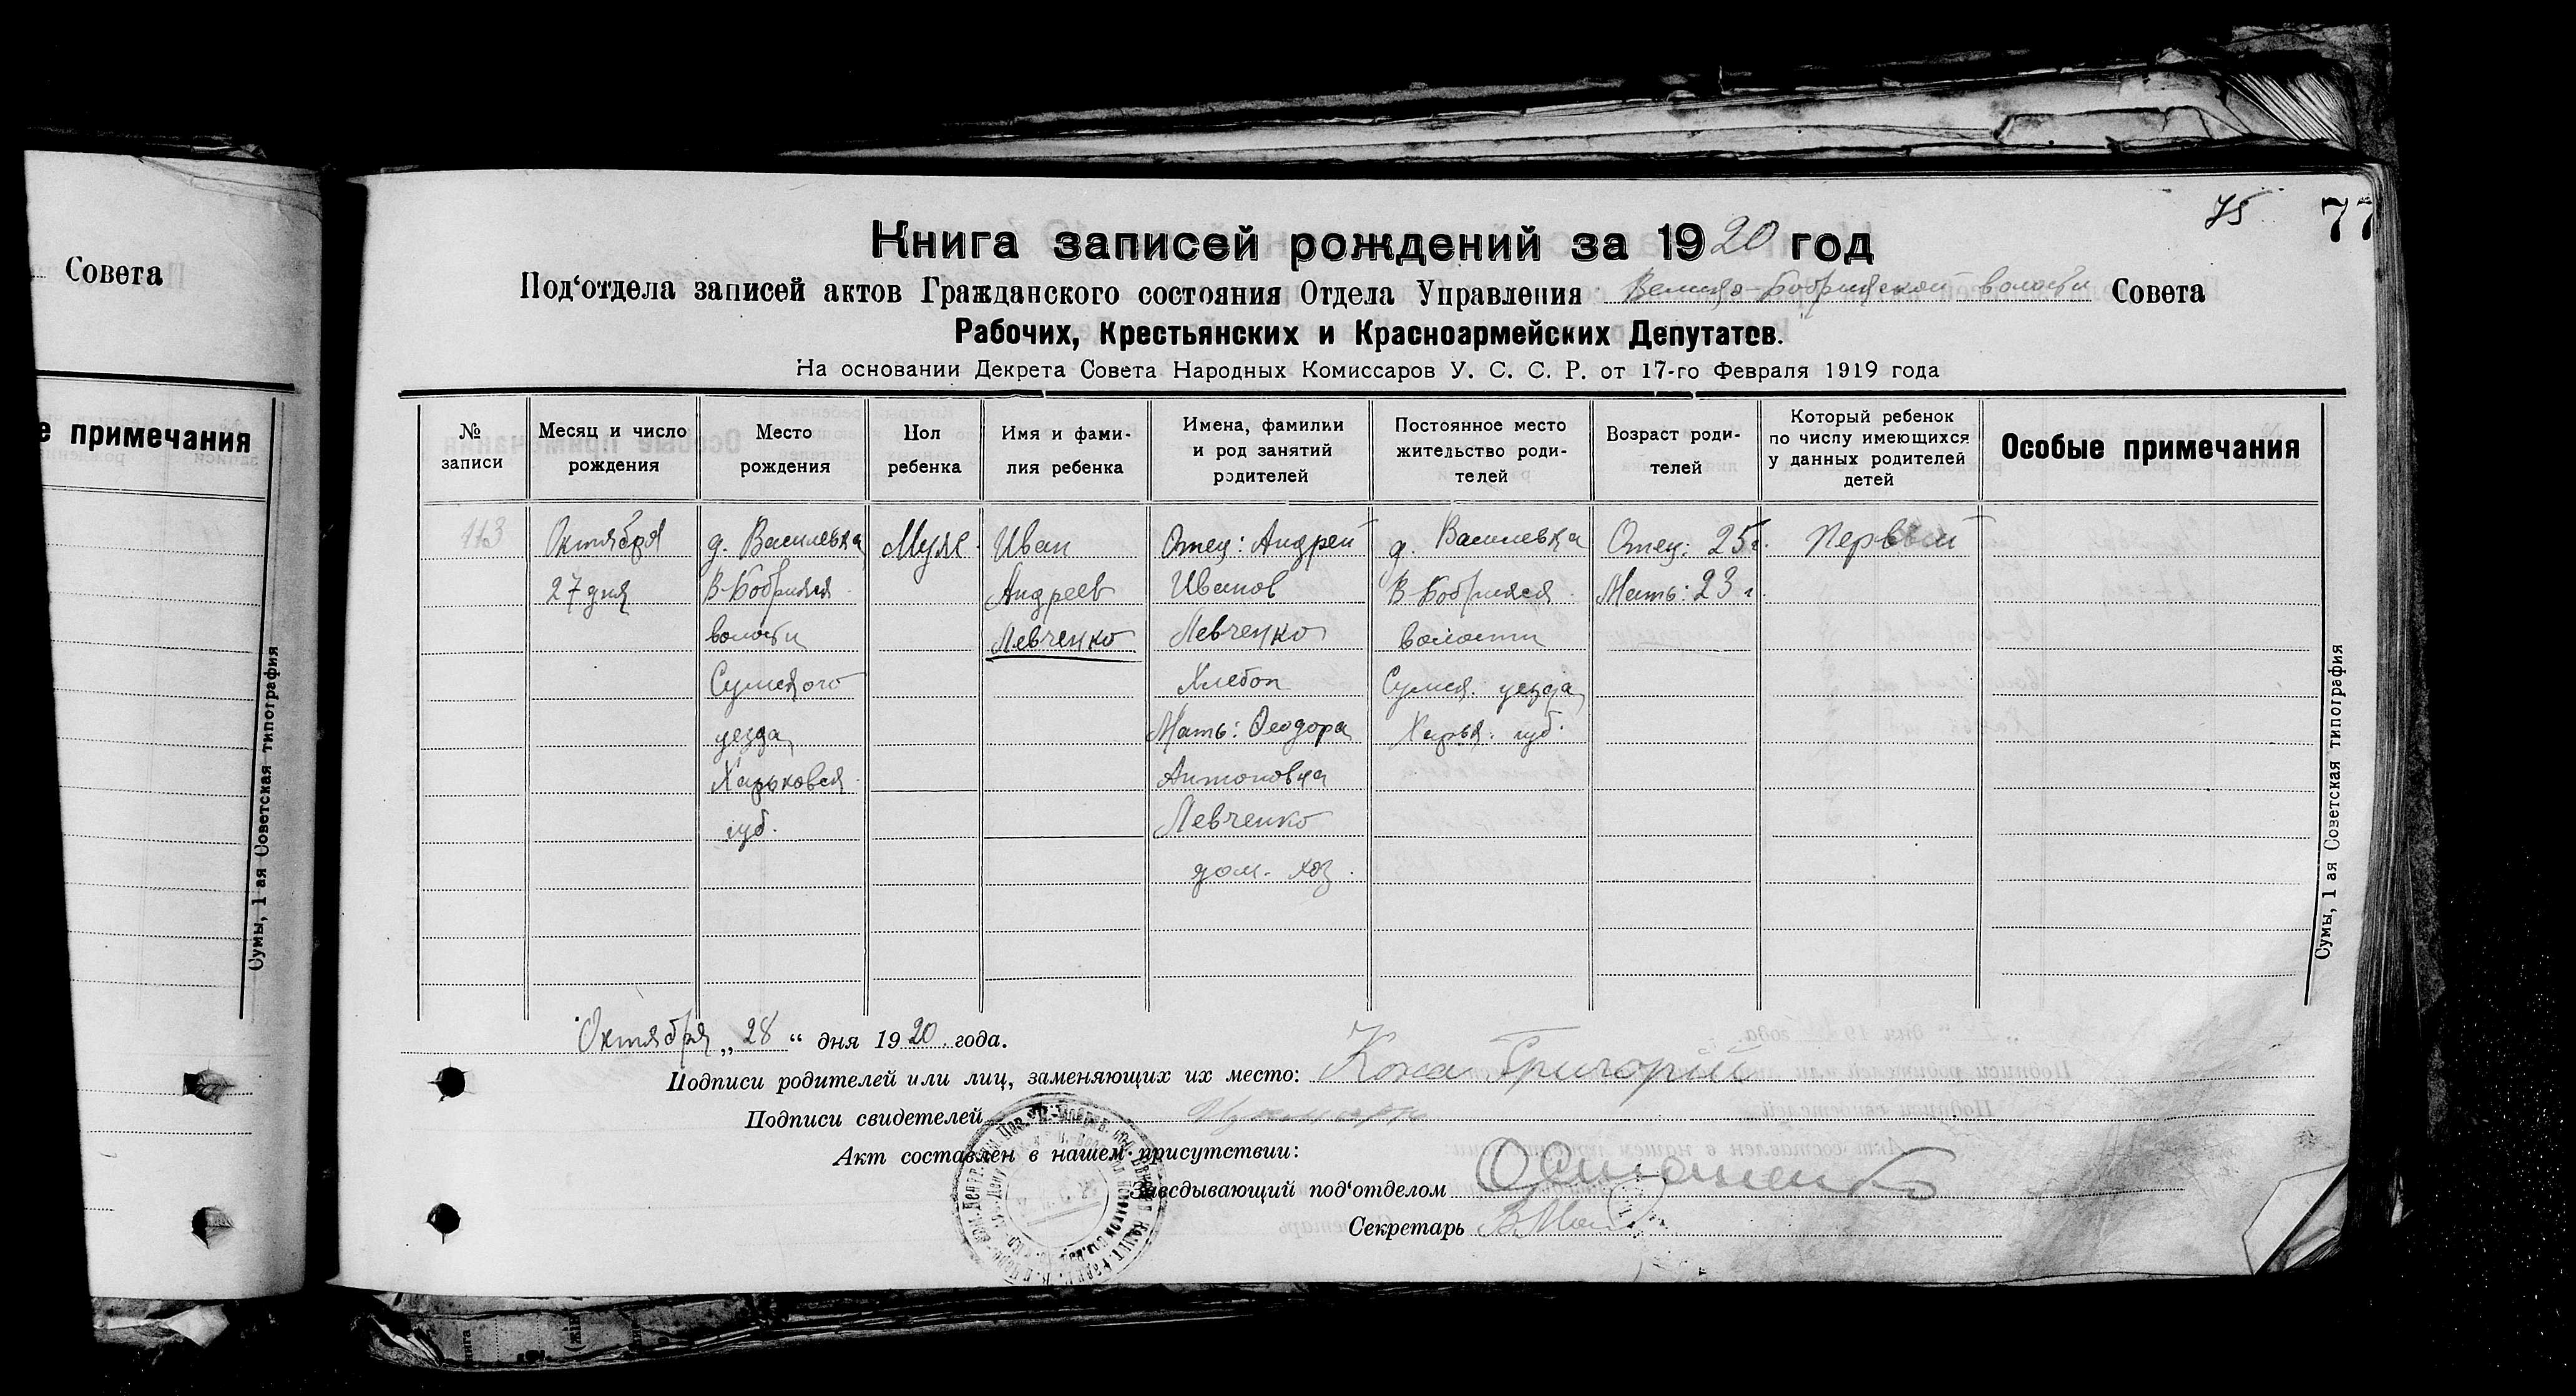 Совета
е примечания
Сумы, 1 ая Советская типография
75
77
Книга записей рождений за 1920 год
Под‘отдела записей актов Гражданского состояния Отдела Управления Велико-Бобрикской волости Совета
Рабочих, Крестьянских и Красноармейских Депутатов.
На основании Декрета Совета Народных Комиссаров У. С. С. Р. от 17-го Февраля 1919 года
№
записи
Месяц и число
рождения
Место
рождения
Пол
ребенка
Имя и фами-
лия ребенка
Имена, фамилии
и род занятий
родителей
Постоянное место
жительство роди-
телей
Возраст роди-
телей
Который ребенок
по числу имеющихся
у данных родителей
детей
Особые примечания
113
Октября
27 дня
д. Василевка
В-Бобрикск
волости
Сумского
уезда
Харьковск
губ.
Муж.
Иван
Андреев
Левченко
Отец: Андрей
Иванов
Левченко
Хлебоп
Мать: Феодора
Антоновна
Левченко
дом. хоз.
д. Василевка
В-Бобрикск.
волости
Сумск. уезда
Харьк. губ.
Отец: 25 г.
Мать: 23 г.
Первый
Сумы, 1 ая Советская типография
Октября „28“ дня 1920 года.
Подписи родителей или лиц, заменяющих их место: Григорій
Подписи свидетелей
Акт составлен в нашем присутствии:
Заведывающий под‘отделом
Секретарь